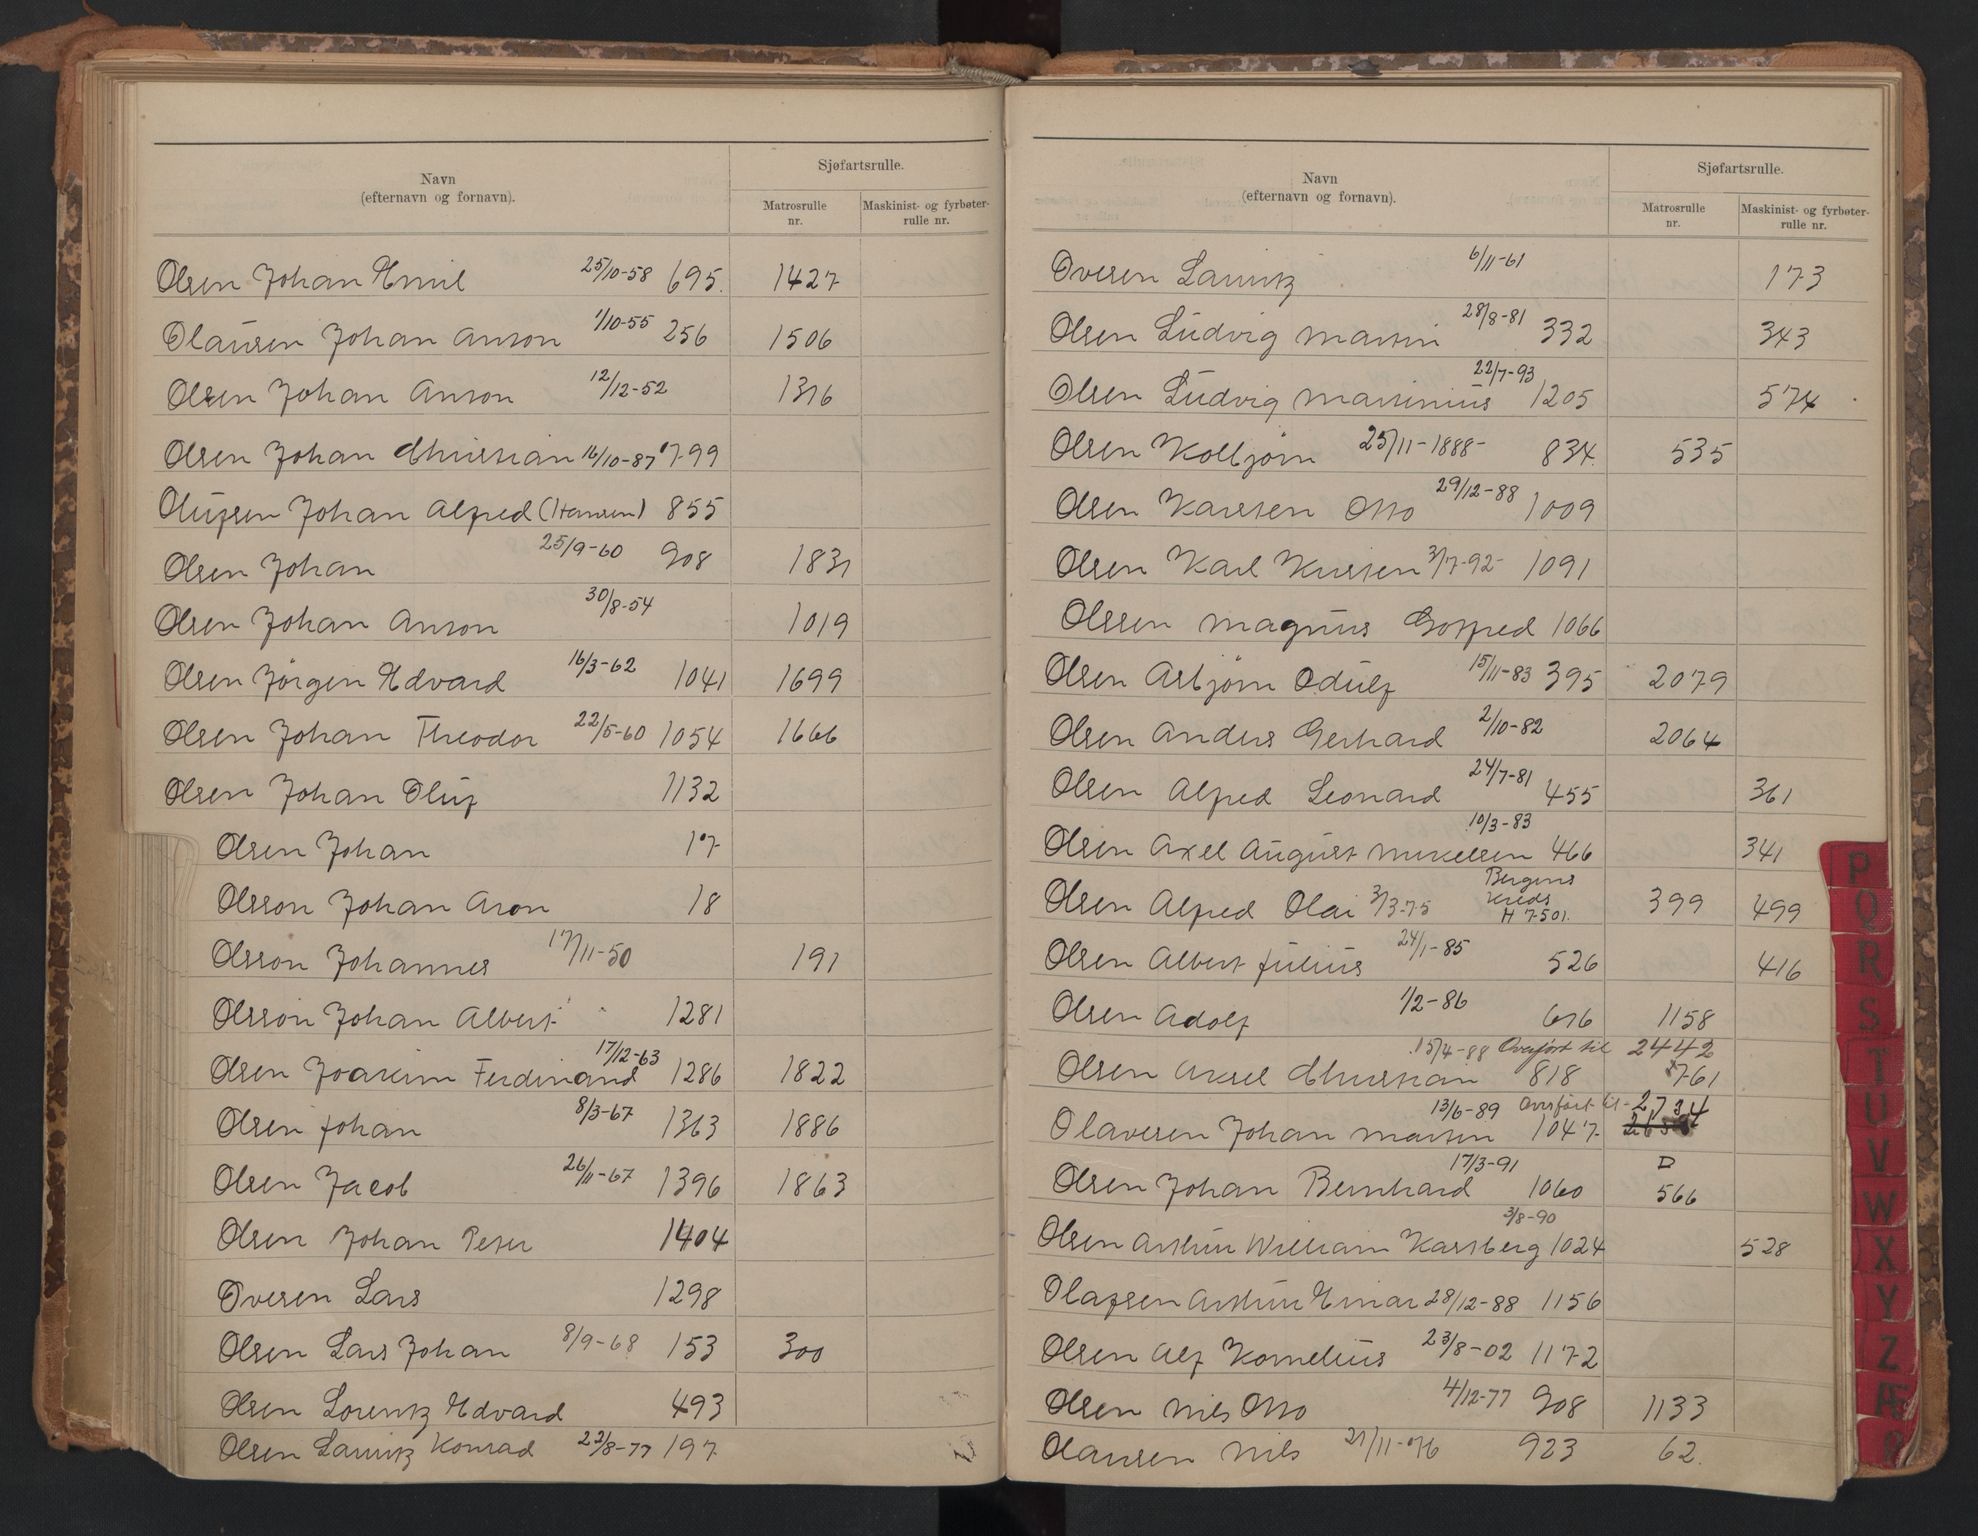 Navn
(efternavn og fornavn).
Sjøfartsrulle.
Matrosrulle nr.
Maskinist- og fyrbøter-rulle nr.
Olsen Johan Emil 25/10-58 695. 1427
Olausen Johan Anton 1/10-55 256 1506
Olsen Johan Anton 12/12-52 1316
Olsen Johan Christian 16/10-87 799
Olufsen Johan Alfred (Hansen) 855
Olsen Johan 25/9-60 908 1831
Olsen Johan Anton 30/8-54 1019
Olsen Jørgen Edvard 16/3-62 1041 1699
Olsen Johan Theodor 22/5-60 1054 1666
Olsen Johan Oluf 1132
Olsen Johan 17
Olsson Johan Aron 18
Olsson Johannes 17/11-50 191
Olsson Johan Albert 1281
Olsen Joakim Ferdinand 17/12-63 1286 1822
Olsen Johan 8/3-67 1363 1886
Olsen Jacob 26/11-67 1396 1863
Olsen Johan Peter 1404
Oversen Lars 1298
Olsen Lars Johan 8/9-68 153 300
Olsen Lorentz Edvard 493
Olsen Lauritz Konrad 22/8-77 197
Navn
(efternavn og fornavn).
Sjøfartsrulle.
Matrosrulle nr.
Maskinist- og fyrbøter-rulle nr.
Ovesen Lauritz 6/11-61 173
Olsen Ludvig Martin 28/8-81 332 343
Olsen Ludvig Martinius 22/7-93 1205 574
Olsen Kolbjørn 25/11-1888- 834. 535
Olsen Karsten Otto 29/12-88 1009
Olsen Karl Kristen 3/7-92- 1091
Olssen Magnus Gotfred 1066
Olsen Asbjørn Odulf 15/11-83 395 2079
Olsen Anders Gerhard 2/10-82 2064
Olsen Alfred Leonard 24/7-81 455 361
Olsen Axel August Mikelsen 10/3-83 466 341
Olsen Alfred Olai 3/3-75 Bergens Kreds H 7501. 399 499
Olsen Albert Julius 24/1-85 526 416
Olsen Adolf 1/2-86 616 1158
Olsen Aksel Christian 15/4-88 Overført til 2442
818 761
Olavesen Johan Martin 13/6-89 Overført til - 2734
1047
Olsen Johan Bernhard 17/3-91 1060 D 566
Olsen Arthur William Karsberg 3/8-90 1024 528
Olafsen Arthur Einar 28/12-88 1156
Olsen Alf Kornelius 23/8-02 1172
Olsen Nils Otto 4/12-77 908 1133
Olausen Nils 21/11-76 923 62.
P
Q
R
S
T
U
V
W
X
Y
Z
Æ
Ø